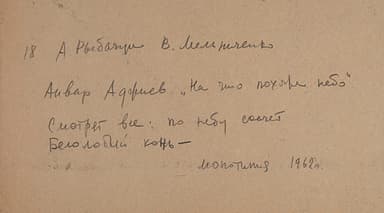 18 А. Рыбачук В. Мельниченко
Анвар Аджиев „На что похоже небо"
Смотрят все: по небу скачет
Белолобый конь —
монотипия 1962г.